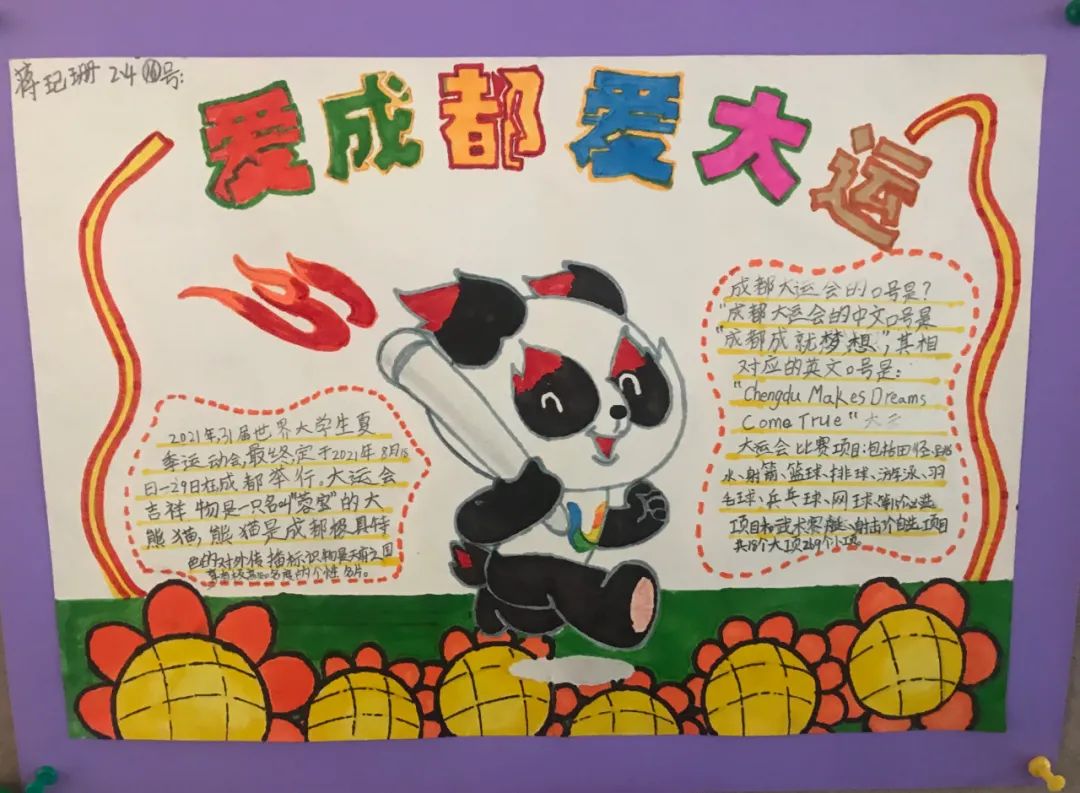 蒋玘珊 2.4 ⑯号:
爱成都爱大运
2021年,31届世界大学生夏
季运动会,最终定于2021年8月18
日—29日在成都举行,大运会
吉祥物是一只名叫"蓉宝"的大
熊猫,熊猫是成都极具特
色的对外传播标识物是天府之国
享有极高知名度的个性名片。
成都大运会的口号是?
"成都大运会的中文口号是
"成都成就梦想",其相
对应的英文口号是:
"Chengdu Makes Dreams
Come True"大运
大运会比赛项:包括田径、跳
水、射箭、篮球、排球、游泳、羽
毛球、乒乓球、网球等
项目和武术、赛艇、射击个自选项目
共18个大项269个小项。